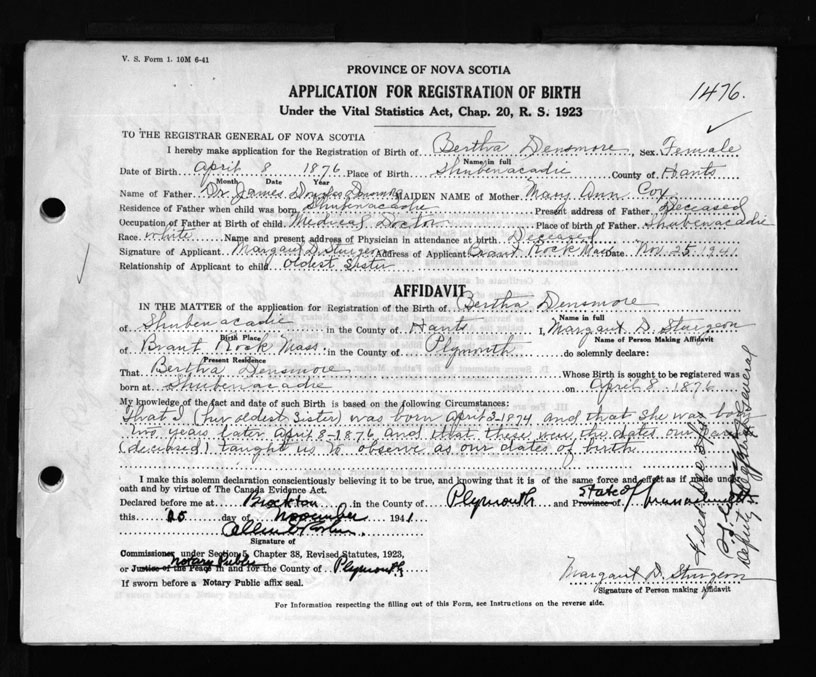 V. S. Form 1. 10M 6-41
PROVINCE OF NOVA SCOTIA
APPLICATION FOR REGISTRATION OF BIRTH
1476.
Under the Vital Statistics Act, Chap. 20, R. S. 1923
TO THE REGISTRAR GENERAL OF NOVA SCOTIA
I hereby make application for the Registration of Birth of Bertha Densmore, Sex Female
Name in full
Date of Birth April 8 1876 Place of Birth Shubenacadie County of Hants
Month Date Year
Name of Father Dr. James Densmore MAIDEN NAME of Mother Mary Ann Cox
Residence of Father when child was born Shubenacadie Present address of Father Deceased
Occupation of Father at Birth of child Medical Doctor Place of birth of Father Shubenacadie
Race white Name and present address of Physician in attendance at birth Deceased
Signature of Applicant Margaret D. Sturgeon Address of Applicant Brant Rock Mass Date Nov. 25 1941
Relationship of Applicant to child oldest sister
AFFIDAVIT
IN THE MATTER of the application for Registration of the Birth of Bertha Densmore
Name in full
of Shubenacadie in the County of Hants I, Margaret D. Sturgeon
Birth Place Name of Person Making Affidavit
of Brant Rock Mass in the County of Plymouth do solemnly declare:
Present Residence
That Bertha Densmore Whose Birth is sought to be registered was
born at Shubenacadie on April 8 - 1876
My knowledge of the fact and date of such Birth is based on the following Circumstances:
That I (her oldest sister) was born April 3-1874 and that she was born
two years later April 8-1876 and that these were the dates our
(deceased) taught us to observe as our dates of birth
I make this solemn declaration conscientiously believing it to be true, and knowing that it is of the same force and effect as if made under
oath and by virtue of The Canada Evidence Act.
Declared before me at Brockton in the County of Plymouth and Province of State of
this 25 day of November 1941
Signature of
Commissioner under Section 5, Chapter 38, Revised Statutes, 1923,
Notary Public
or Justice of the Peace in and for the County of Plymouth
If sworn before a Notary Public affix seal.
Margaret D. Sturgeon
Signature of Person making Affidavit
For Information respecting the filling out of this Form, see Instructions on the reverse side.
Filed Dec
Deputy Registrar General